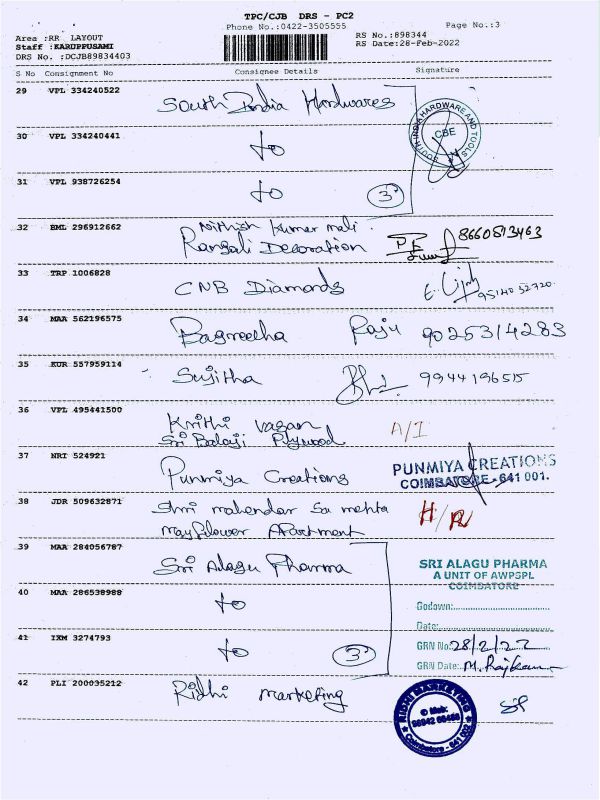 TPC/CJB DRS - PC2
Phone No.:0422-3505555
Page No.:3
Area :RR LAYOUT
RS No.:898344
Staff :KARUPPUSAMI
RS Date:28-Feb-2022
DRS No. :DCJB89834403
S No Consignment No Consignee Details Signature
29 VPL 334240522 South India Hardwares
SOUTH INDIA HARDWARE AND TOOLS
CBE
30 VPL 334240441 to
31 VPL 938726254 to 3
32 BML 296912662 Nithish Kumar mali
Rangoli Decoration 8660813463
33 TRP 1006828 CNB Diamonds 95140 52720
34 MAA 562196575 Bagreecha Raju 9025314283
35 KUR 557959114 Sujitha 9944196515
36 VPL 495441500 Krithi vagan A/I
Sri Balaji Plywood
37 NRI 524921 Punmiya Creations
PUNMIYA CREATIONS
COIMBATORE - 641 001.
38 JDR 509632871 Shri mahendar Sa mehta H/R
mayflower Apartment
39 MAA 284056787 Sri Alagu Pharma
SRI ALAGU PHARMA
A UNIT OF AWPSPL
COIMBATORE
40 MAA 286538988 to
Godown:
Date:
41 IXM 3274793 to 3
GRN No: 28/2/22
GRN Date: M. Rajkumar
42 PLI 200035212 Ridhi marketing
RIDHI MARKETING
Coimbatore - 641 002